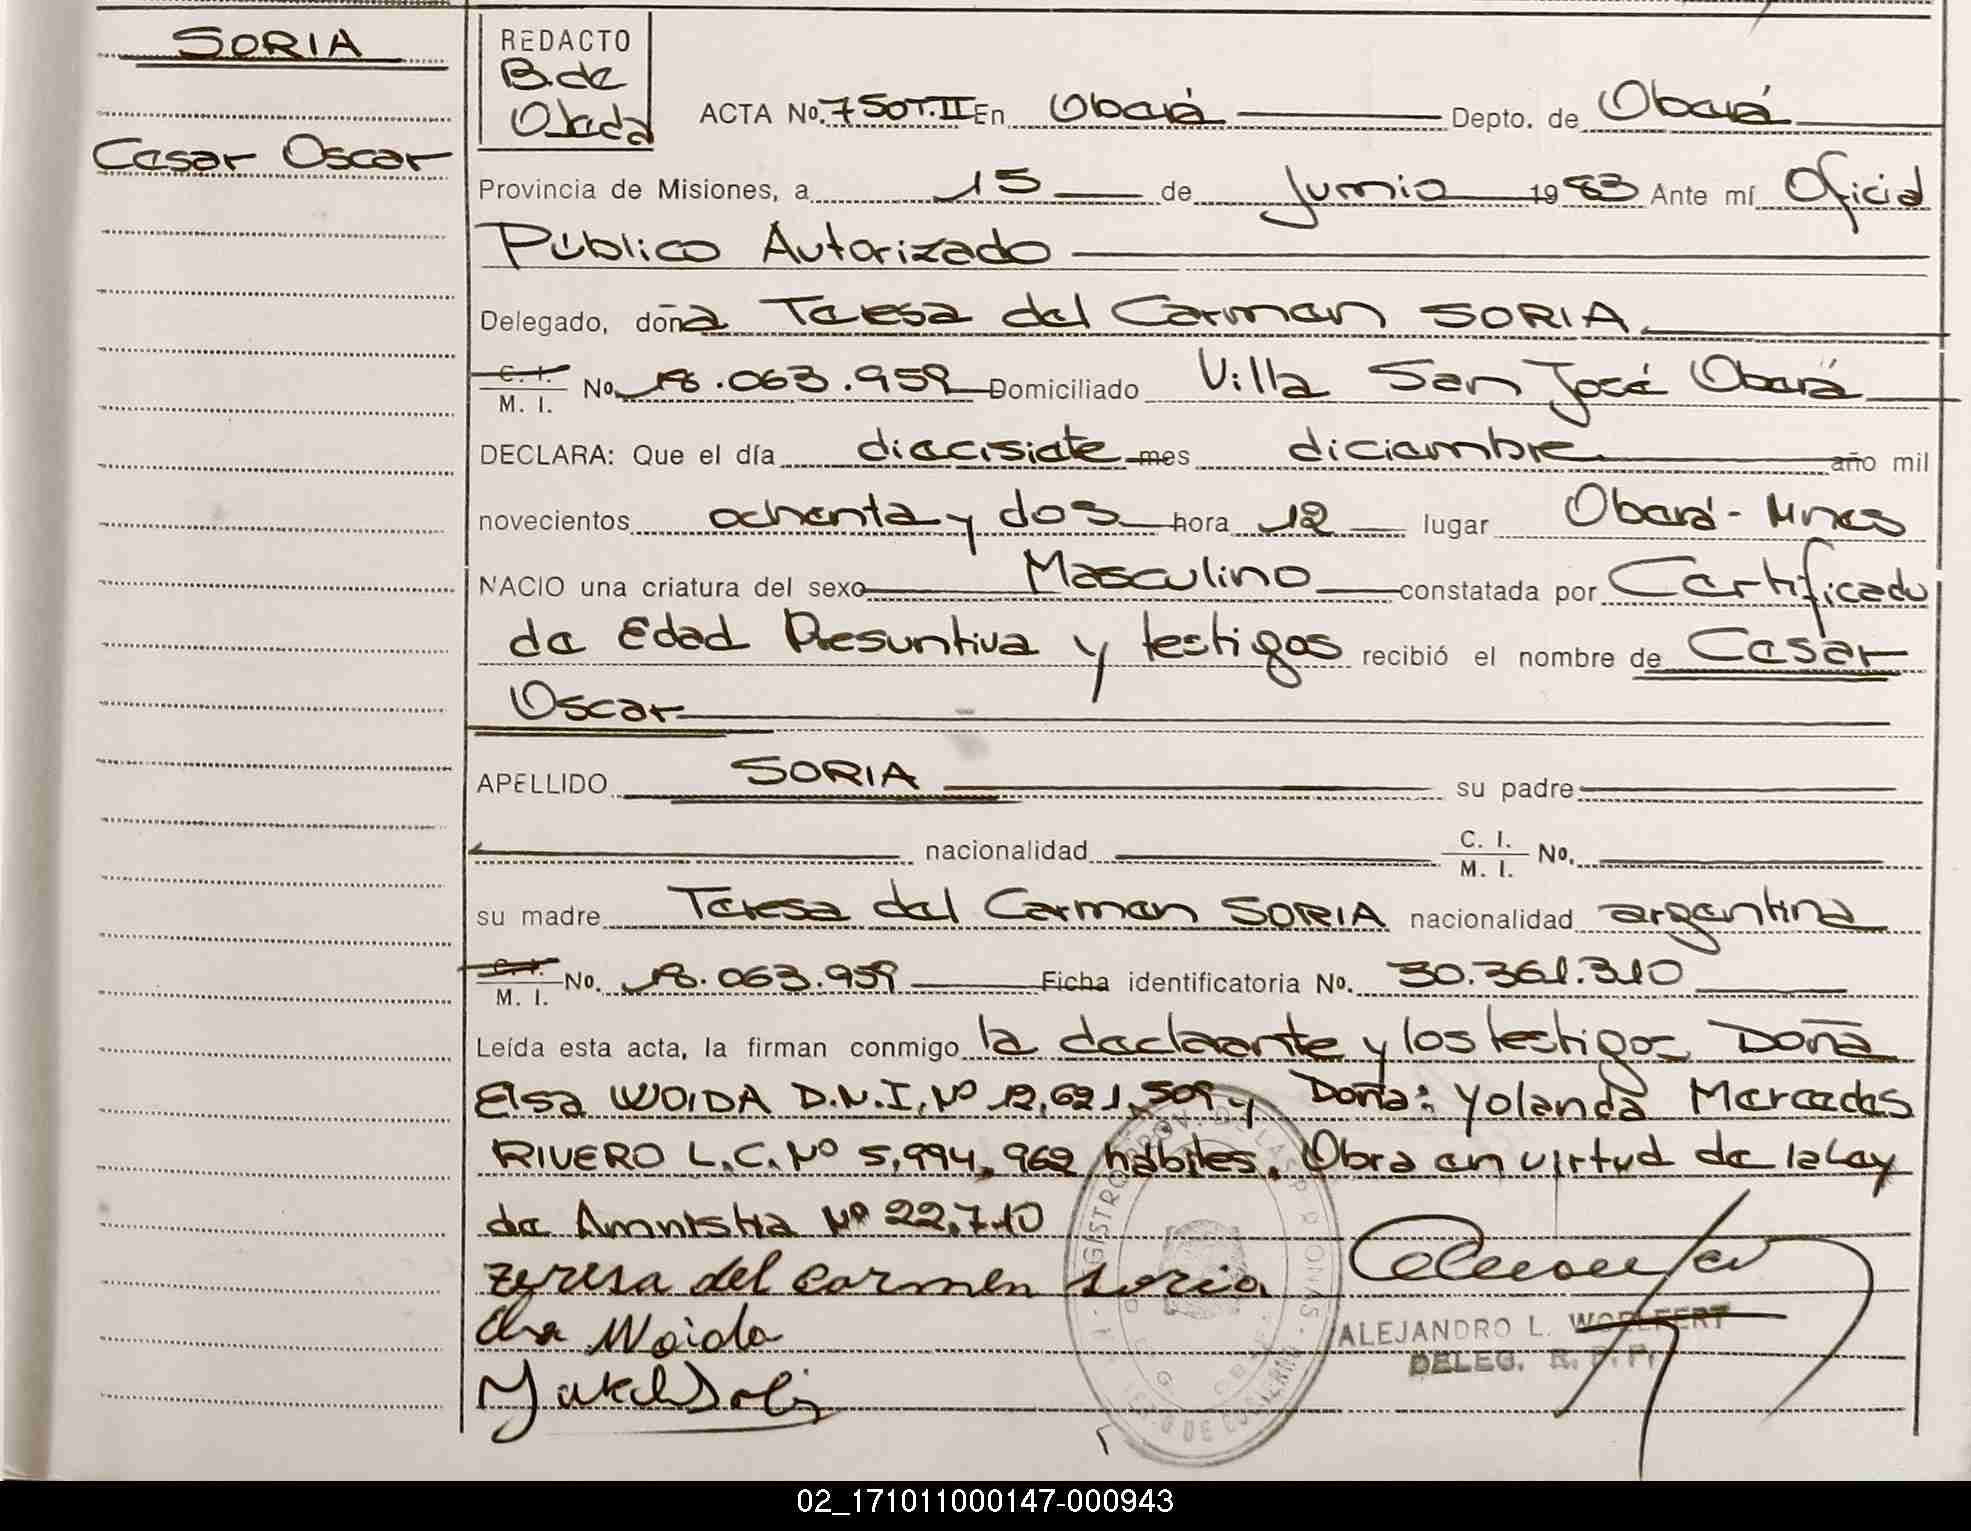 SORIA
Cesar Oscar
REDACTO
B. de
Ojeda
ACTA No. 750T.II En Oberá Depto. de Oberá
Provincia de Misiones, a 15 de Junio 1983 Ante mí Oficial
Público Autorizado
Delegado, doña Teresa del Carmen SORIA
C. I.
M. I. No. 18.063.959 Domiciliado Villa San José Oberá
DECLARA: Que el día diecisiete mes diciembre año mil
novecientos ochenta y dos hora 12 lugar Oberá - Mnes
NACIO una criatura del sexo Masculino constatada por Certificado
de Edad Presuntiva y testigos recibió el nombre de Cesar
Oscar
APELLIDO SORIA su padre
nacionalidad C. I.
M. I. No.
su madre Teresa del Carmen SORIA nacionalidad argentina
C. I.
M. I. No. 18.063.959 Ficha identificatoria No. 30.361.310
Leída esta acta, la firman conmigo la declarante y los testigos Doña
Elsa WOIDA D.N.I. Nº 12.621.509 y Doña: Yolanda Mercedes
RIVERO L.C. Nº 5.994.962 hábiles. Obra en virtud de la Ley
de Amnistia Nº 22.710
Teresa del Carmen Soria
Elsa Woida
ALEJANDRO L. WOELFERT
DELEG. R. P. P.
02_171011000147-000943